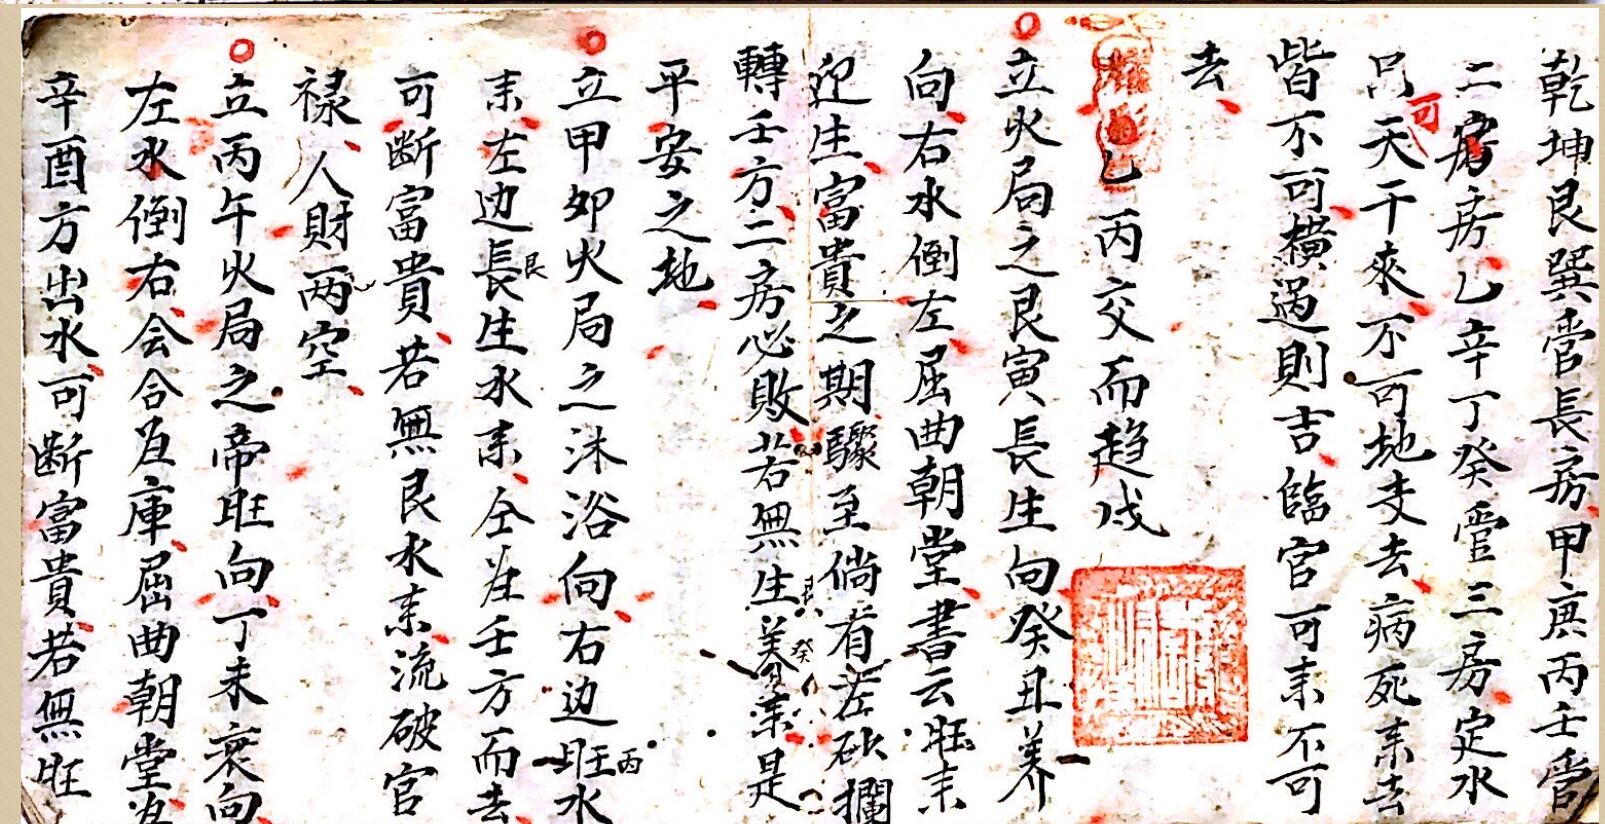 乾坤艮巽管長房甲庚丙壬管
二房房乙辛丁癸管三房定水
只可天干來不可地支去病死来去
皆不可橫過則吉臨官可来不可
去
乙丙交而趋戌
立火局之艮寅長生向癸丑养
向右水倒左屈曲朝堂書云旺来
迎生富貴之期驟至倘有左砍攔
轉壬方二房必敗若無生养来是
平安之地
立甲卯火局之沐浴向右边旺丙水
来左边長艮生水来仝在壬方而去
可断富貴若無艮水来流破官
禄人財两空
立丙午火局之帝旺向丁未衰向
左水倒右会合庫屈曲朝堂
辛酉方出水可断富貴若無旺